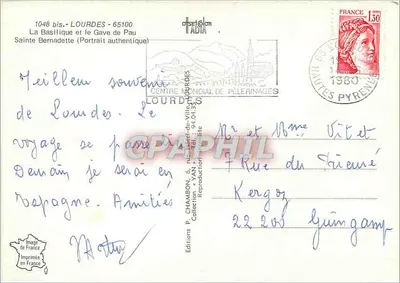 1048 bis.- LOURDES - 65100
La Basilique et le Gave de Pau
Sainte Bernadette (Portrait authentique)
ADIA
CENTRE MONDIAL DE PÈLERINAGES
LOURDES
1980
HAUTES PYRENEES
FRANCE
1,30
Meilleur souvenir
de Lourdes. Le
voyage se passe
Demain je serai en
Espagne. Amitiés
Mr et Mme Vitet
7 Rue du Prieuré
Kergoz
22200 Guingamp
Editions P. CHAMBON, 5, Hôtel-de-Ville, LOURDES
Collection YAN 94.01.35
Reproduction
Image
de France
Imprimée
en France
CPAPHIL